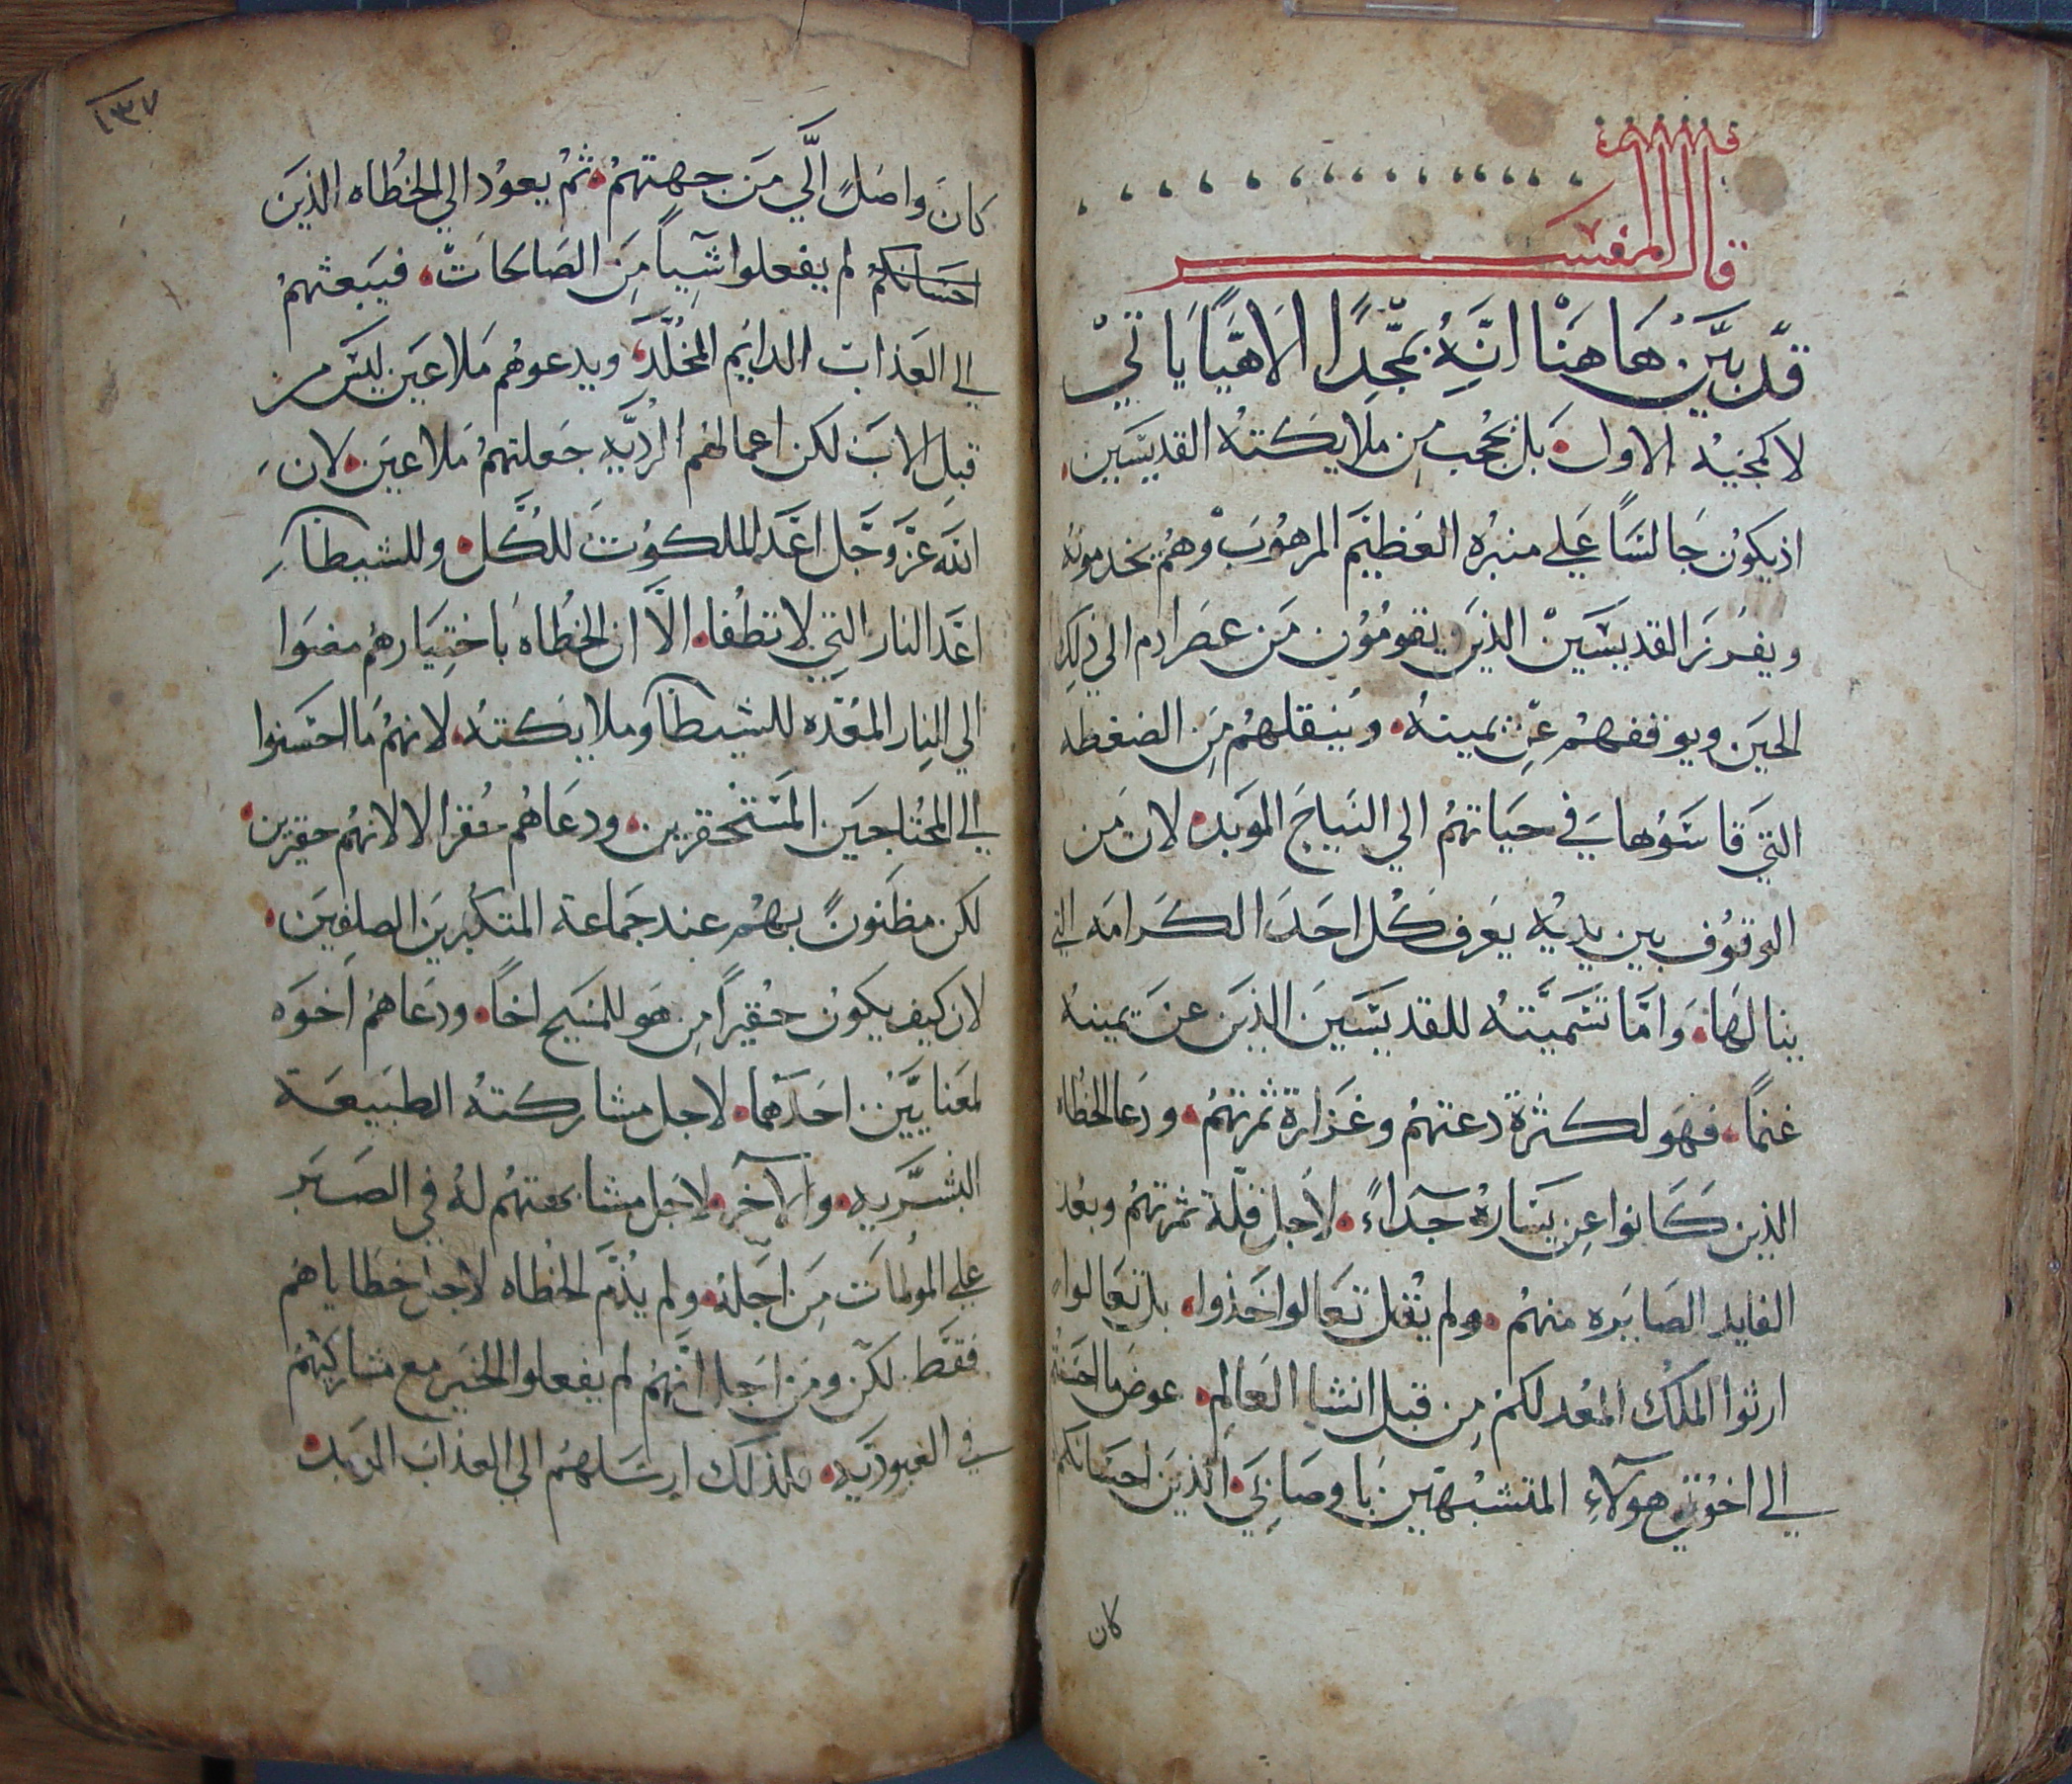 قال المفسر
قد بين هاهنا انه بمجدا الاهيا ياتي
لا كمجيه الاول بل بحجب من ملايكته القديسين
اذ يكون جالسا علي منبره العظيم المرهوب وهم يخدمونه
ويفرز القديسين الذين يقومون من عصر ادم الي ذلك
الحين ويوقفهم عن يمينه وينقلهم من الضغطه
التي قاسوها في حياتهم الي النياح الموبد لان من
الوقوف بين يديه يعرف كل احد الكرامه التي
ينالها واما تسميته للقديسين الذين عن يمينه
غنما فهو لكثرة دعتهم وغزارة ثمرتهم ودعا الخطاه
الذين كانوا عن يساره جداء لاجل قلة ثمرتهم وبعد
الفايد الصايره منهم ولم يقل تعالوا خذوا بل تعالوا
ارثوا الملك المعد لكم من قبل انشا العالم عوض ما احسنتم
الي اخوتي هولاء المتشبهين باوصابي الذين احسانكم
كان
١٣٧
كان واصل الي من جهتهم ثم يعود الي الخطاه الذين
احسانكم لم يفعلوا شيا من الصالحات فيبعثهم
الي العذاب الدايم المخلد ويدعوهم ملاعين ليس من
قبل الاب لكن اعمالهم الرديه جعلتهم ملاعين لان
الله عز وجل اعد الملكوت للكل وللشيطان
اعد النار التي لا تطفا الا ان الخطاه باختيارهم مضوا
الي النار المعده للشيطان وملايكته لانهم ما احسنوا
الي المحتاجين المستحقرين ودعاهم حقرا لا لانهم حقيرين
لكن مظنون بهم عند جماعة المتكبرين الصلفين
لان كيف يكون حقيرا من هو للمسيح اخا ودعاهم اخوه
لمعنايين احدهما لاجل مشاركته الطبيعة
البشريه والاخر لاجل مشابهتهم له في الصبر
علي المولمات من اجله ولم يذم الخطاه لاجل خطاياهم
فقط لكن ومن اجل انهم لم يفعلوا الخير مع مشاركيهم
في العبوديه فلذلك ارسلهم الي العذاب الموبد